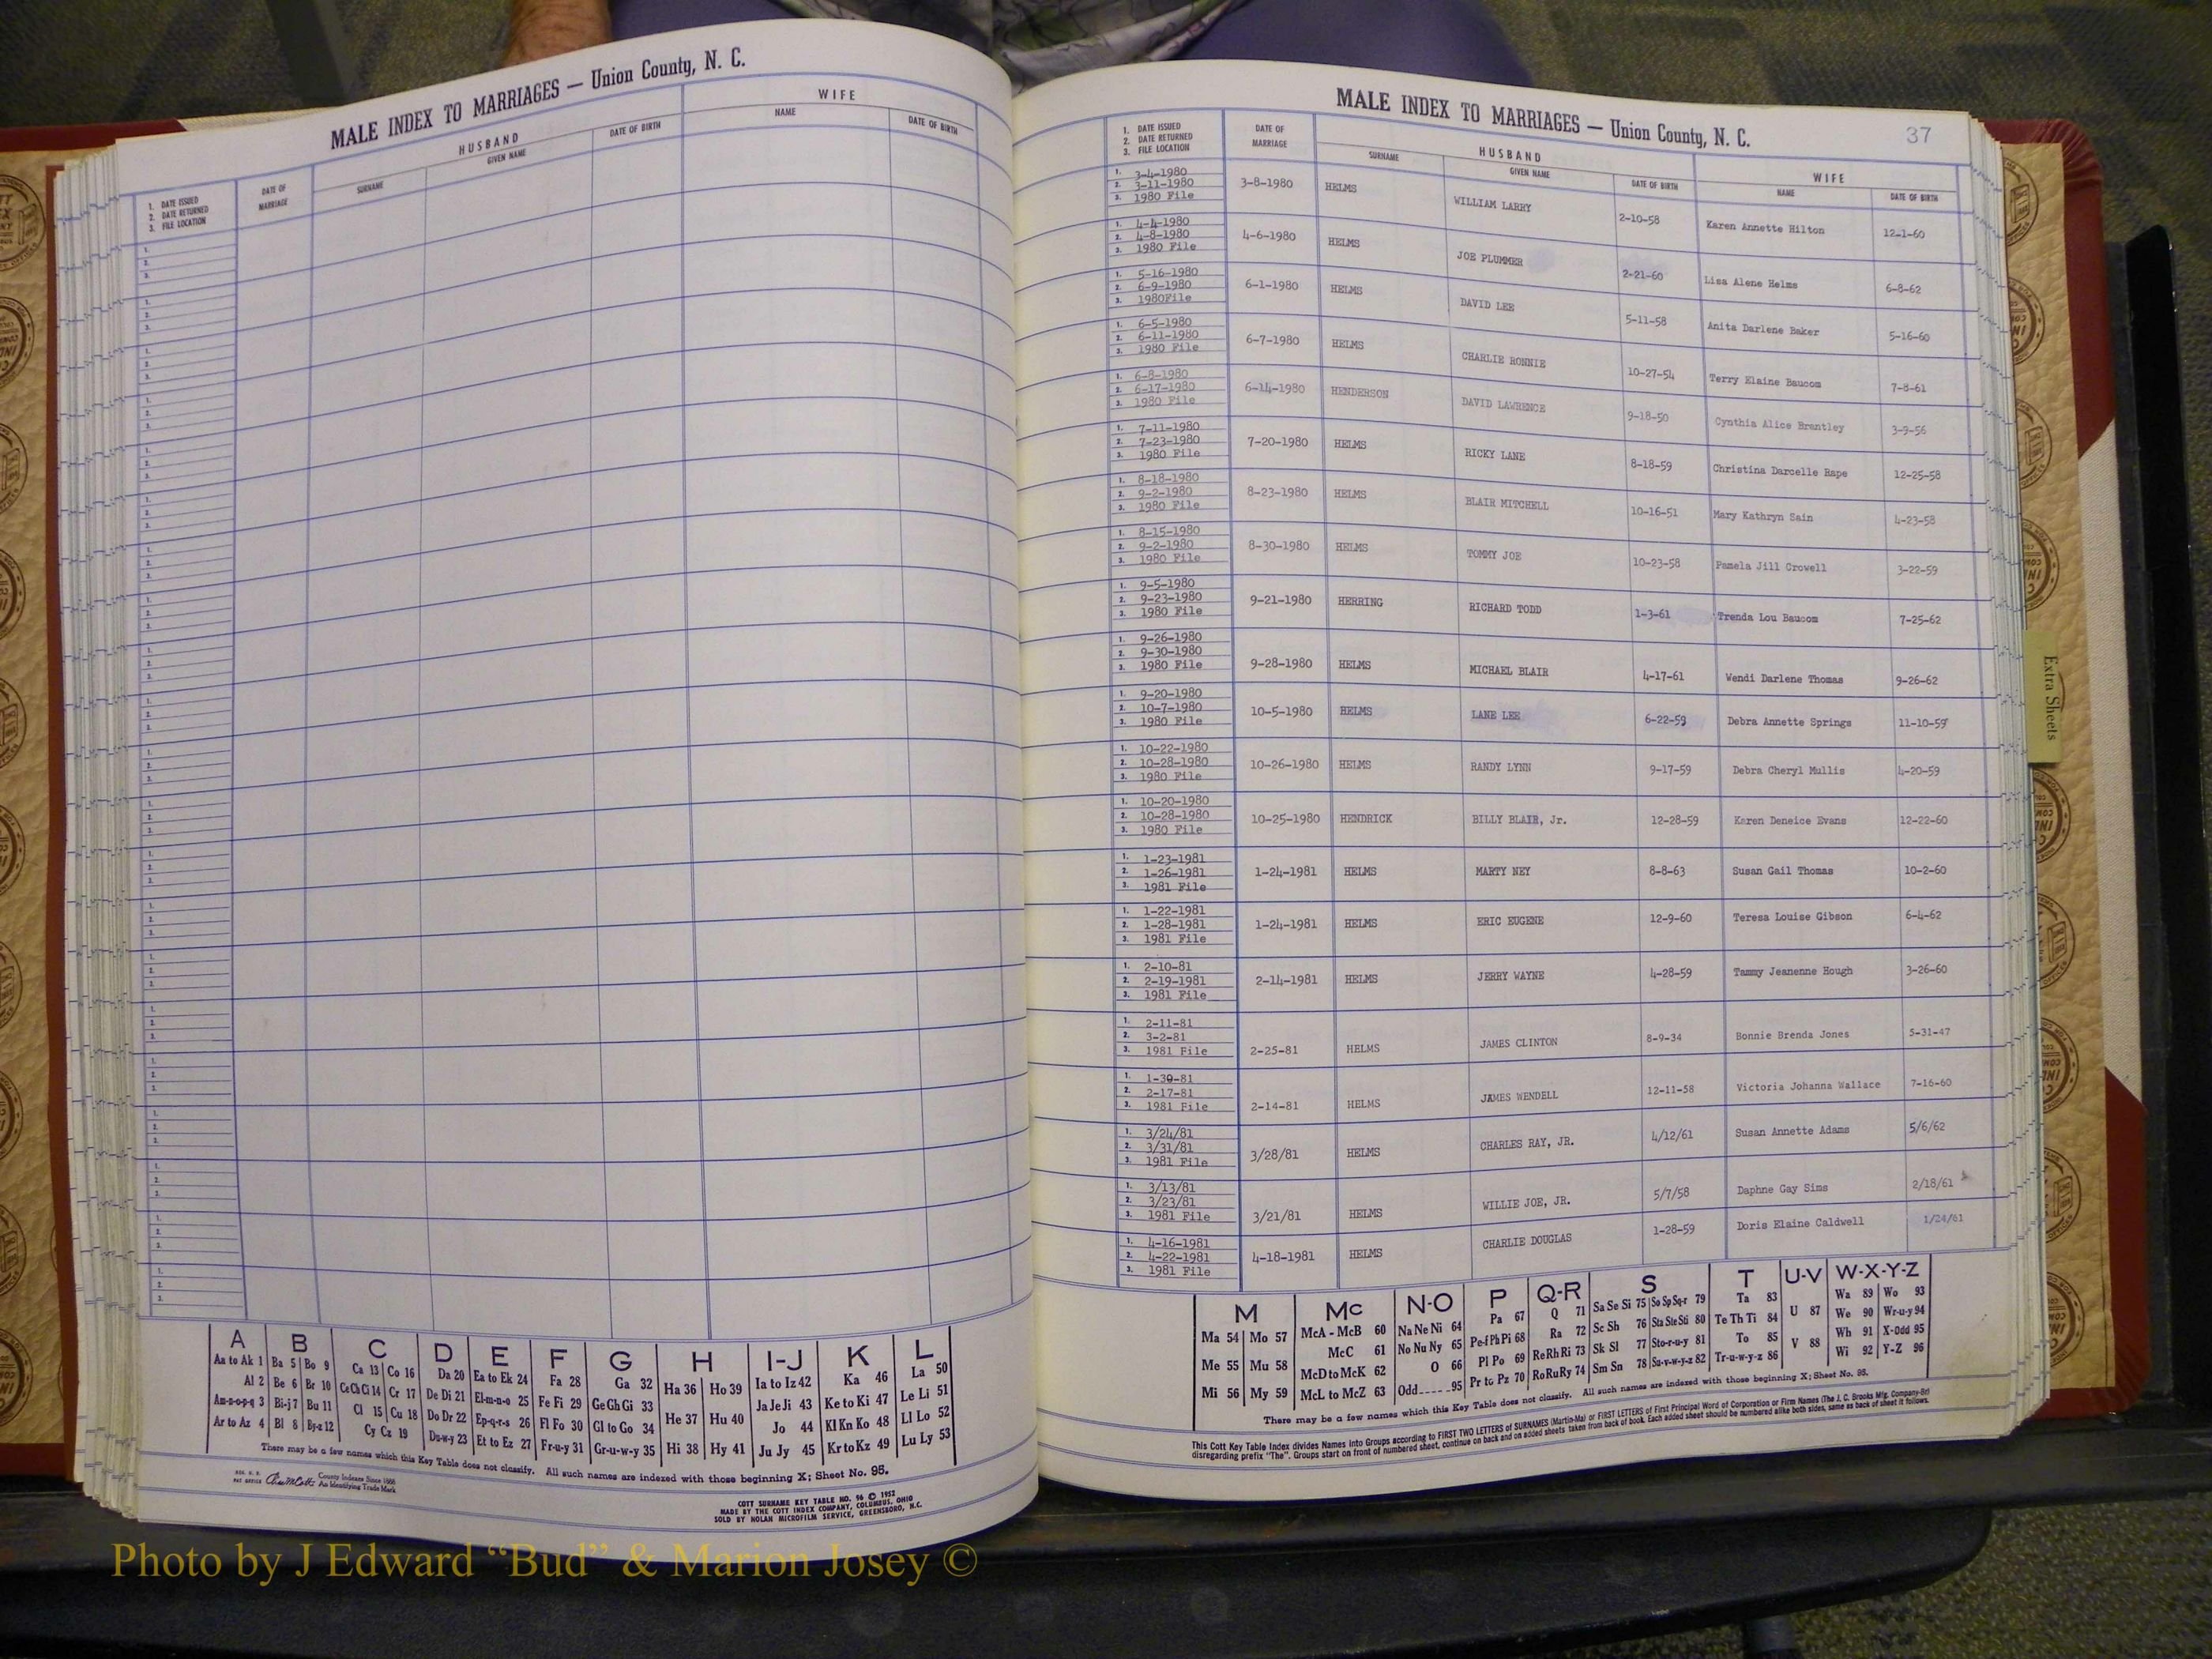 MALE INDEX TO MARRIAGES — Union County, N. C.
HUSBAND
WIFE
1. DATE ISSUED
2. DATE RETURNED
3. FILE LOCATION
DATE OF MARRIAGE
SURNAME
GIVEN NAME
DATE OF BIRTH
NAME
DATE OF BIRTH
A B C D E F G H I-J K L
Aa to Ak 1 Ba 5 Bo 9 Ca 13 Co 16 Da 20 Ea to Ek 24 Fa 28 Ga 32 Ha 36 Ho 39 Ia to Iz 42 Ka 46 La 50
Al 2 Be 6 Br 10 Ce Ch Ci 14 Cr 17 De Di 21 El-m-n-o 25 Fe Fi 29 Ge Gh Gi 33 He 37 Hu 40 Ja Je Ji 43 Ke to Ki 47 Le Li 51
Am-n-o-p-q 3 Bi-j 7 Bu 11 Cl 15 Cu 18 Do Dr 22 Ep-q-r-s 26 Fl Fo 30 Gl to Go 34 Hi 38 Hy 41 Jo 44 Kl Kn Ko 48 Ll Lo 52
Ar to Az 4 Bl 8 By-z 12 Cy Cz 19 Du-w-y 23 Et to Ez 27 Fr-u-y 31 Gr-u-w-y 35 Ju Jy 45 Kr to Kz 49 Lu Ly 53
There may be a few names which this Key Table does not classify. All such names are indexed with those beginning X; Sheet No. 95.
County Indexes Since 1888
An Identifying Trade Mark
COTT SURNAME KEY TABLE NO. 96 © 1952
MADE BY THE COTT INDEX COMPANY, COLUMBUS, OHIO
SOLD BY NOLAN MICROFILM SERVICE, GREENSBORO, N.C.
MALE INDEX TO MARRIAGES — Union County, N. C.
37
1. DATE ISSUED
2. DATE RETURNED
3. FILE LOCATION
DATE OF MARRIAGE
HUSBAND
SURNAME
GIVEN NAME
DATE OF BIRTH
WIFE
NAME
DATE OF BIRTH
1. 3-4-1980
2. 3-11-1980
3. 1980 File
3-8-1980 HELMS WILLIAM LARRY 2-10-58 Karen Annette Hilton 12-1-60
1. 4-4-1980
2. 4-8-1980
3. 1980 File
4-6-1980 HELMS JOE PLUMMER 2-21-60 Lisa Alene Helms 6-8-62
1. 5-16-1980
2. 6-9-1980
3. 1980File
6-1-1980 HELMS DAVID LEE 5-11-58 Anita Darlene Baker 5-16-60
1. 6-5-1980
2. 6-11-1980
3. 1980 File
6-7-1980 HELMS CHARLIE RONNIE 10-27-54 Terry Elaine Baucom 7-8-61
1. 6-8-1980
2. 6-17-1980
3. 1980 File
6-14-1980 HENDERSON DAVID LAWRENCE 9-18-50 Cynthia Alice Brantley 3-9-56
1. 7-11-1980
2. 7-23-1980
3. 1980 File
7-20-1980 HELMS RICKY LANE 8-18-59 Christina Darcelle Rape 12-25-58
1. 8-18-1980
2. 9-2-1980
3. 1980 File
8-23-1980 HELMS BLAIR MITCHELL 10-16-51 Mary Kathryn Sain 4-23-58
1. 8-15-1980
2. 9-2-1980
3. 1980 File
8-30-1980 HELMS TOMMY JOE 10-23-58 Pamela Jill Crowell 3-22-59
1. 9-5-1980
2. 9-23-1980
3. 1980 File
9-21-1980 HERRING RICHARD TODD 1-3-61 Trenda Lou Baucom 7-25-62
1. 9-26-1980
2. 9-30-1980
3. 1980 File
9-28-1980 HELMS MICHAEL BLAIR 4-17-61 Wendi Darlene Thomas 9-26-62
1. 9-20-1980
2. 10-7-1980
3. 1980 File
10-5-1980 HELMS LANE LEE 6-22-59 Debra Annette Springs 11-10-59
1. 10-22-1980
2. 10-28-1980
3. 1980 File
10-26-1980 HELMS RANDY LYNN 9-17-59 Debra Cheryl Mullis 4-20-59
1. 10-20-1980
2. 10-28-1980
3. 1980 File
10-25-1980 HENDRICK BILLY BLAIR, Jr. 12-28-59 Karen Deneice Evans 12-22-60
1. 1-23-1981
2. 1-26-1981
3. 1981 File
1-24-1981 HELMS MARTY NEY 8-8-63 Susan Gail Thomas 10-2-60
1. 1-22-1981
2. 1-28-1981
3. 1981 File
1-24-1981 HELMS ERIC EUGENE 12-9-60 Teresa Louise Gibson 6-4-62
1. 2-10-81
2. 2-19-1981
3. 1981 File
2-14-1981 HELMS JERRY WAYNE 4-28-59 Tammy Jeanenne Hough 3-26-60
1. 2-11-81
2. 3-2-81
3. 1981 File
2-25-81 HELMS JAMES CLINTON 8-9-34 Bonnie Brenda Jones 5-31-47
1. 1-30-81
2. 2-17-81
3. 1981 File
2-14-81 HELMS JAMES WENDELL 12-11-58 Victoria Johanna Wallace 7-16-60
1. 3/24/81
2. 3/31/81
3. 1981 File
3/28/81 HELMS CHARLES RAY, JR. 4/12/61 Susan Annette Adams 5/6/62
1. 3/13/81
2. 3/23/81
3. 1981 File
3/21/81 HELMS WILLIE JOE, JR. 5/7/58 Daphne Gay Sims 2/18/61
1. 4-16-1981
2. 4-22-1981
3. 1981 File
4-18-1981 HELMS CHARLIE DOUGLAS 1-28-59 Doris Elaine Caldwell 1/24/61
M Mc N-O P Q-R S T U-V W-X-Y-Z
Ma 54 Mo 57 McA - McB 60 Na Ne Ni 64 Pa 67 Q 71 Sa Se Si 75 So Sp Sq-r 79 Ta 83 U 87 Wa 89 Wo 93
Me 55 Mu 58 McC 61 No Nu Ny 65 Pe-f Ph Pi 68 Ra 72 Sc Sh 76 Sta Ste Sti 80 Te Th Ti 84 V 88 We 90 Wr-u-y 94
Mi 56 My 59 McD to McK 62 O 66 Pl Po 69 Re Rh Ri 73 Sk Sl 77 Sto-r-u-y 81 To 85 Wh 91 X-Odd 95
McL to McZ 63 Odd 95 Pr to Pz 70 Ro Ru Ry 74 Sm Sn 78 Su-v-w-y-z 82 Tr-u-w-y-z 86 Wi 92 Y-Z 96
There may be a few names which this Key Table does not classify. All such names are indexed with those beginning X; Sheet No. 95.
This Cott Key Table Index divides Names into Groups according to FIRST TWO LETTERS of SURNAMES (Martin-Ma) or FIRST LETTERS of First Principal Word of Corporation or Firm Names (The J. C. Brooks Mfg. Company-Br)
disregarding prefix "The". Groups start on front of numbered sheet, continue on back and on added sheets taken from back of book. Each added sheet should be numbered alike both sides, same as back of sheet it follows.
Extra Sheets
Photo by J Edward “Bud” & Marion Josey ©